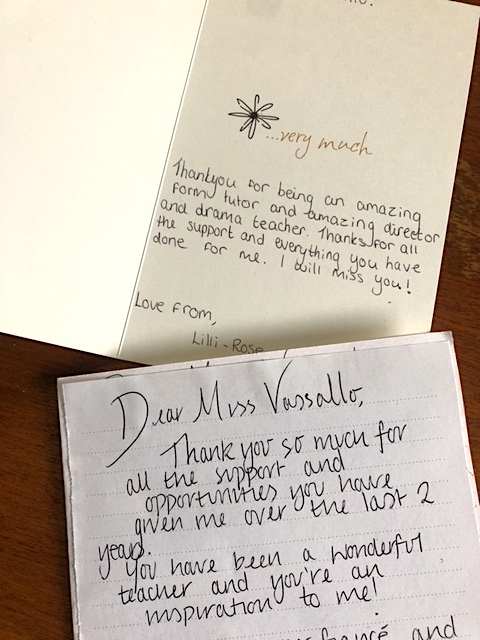 ...very much
Thankyou for being an amazing
form tutor and amazing director
and drama teacher. Thanks for all
the support and everything you have
done for me. I will miss you!
Love from,
Lilli-Rose
Dear Miss Vassallo,
Thank you so much for
all the support and
opportunities you have
given me over the last 2
years.
You have been a wonderful
teacher and you're an
inspiration to me!
and